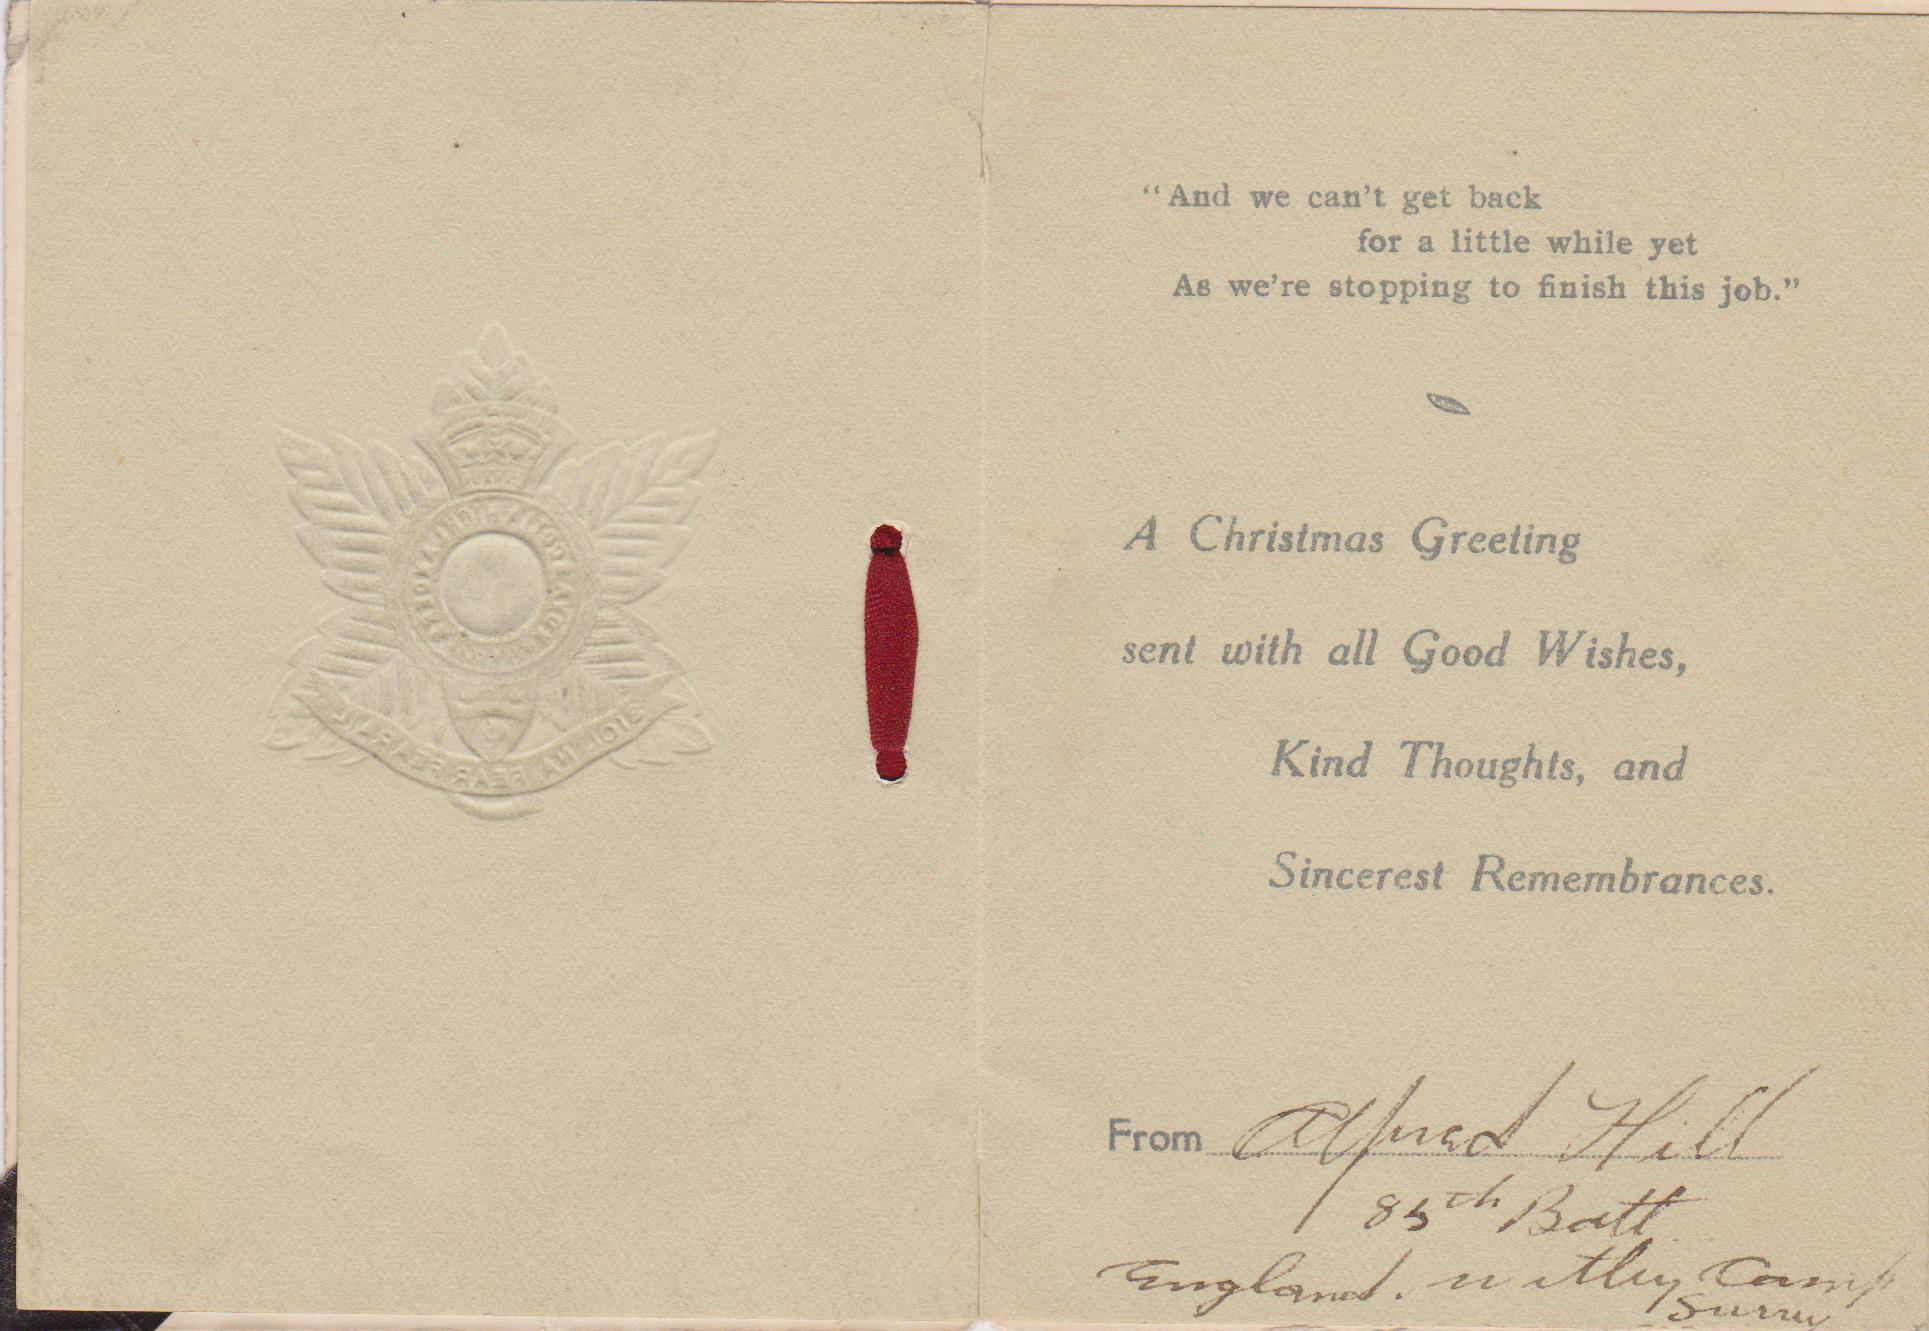 SIOL NA FEAR FEARAIL
“And we can’t get back
for a little while yet
As we’re stopping to finish this job.”
A Christmas Greeting
sent with all Good Wishes,
Kind Thoughts, and
Sincerest Remembrances.
From Alfred Hill
85th Batt
England. Witley Camp
Surry